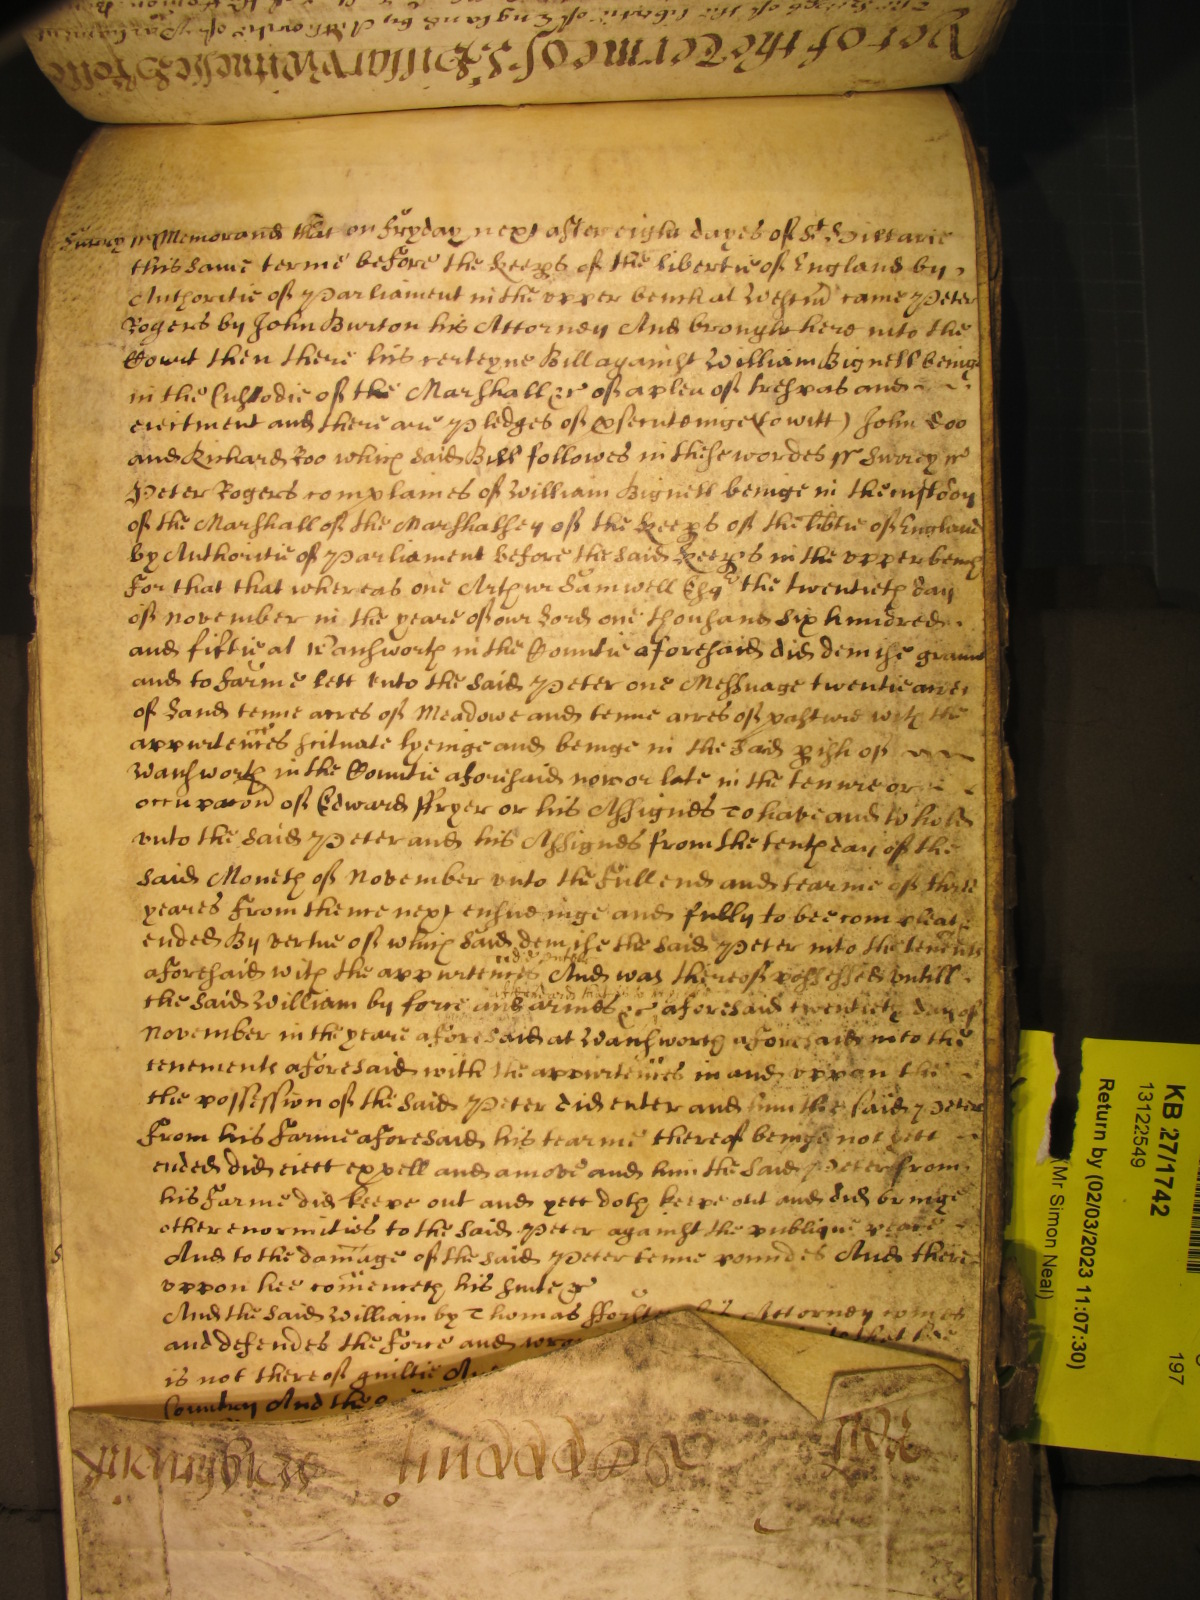 Yet of the Terme of St Hillary Witnesse Rolle
the Keeps of the libertie of England by Authoritie of Parliament
Surrey ss Memorand that on Fryday next after eight dayes of St Hillarie
this same terme before the Keeps of the libertie of England by
Authoritie of Parliament in the upper bench at Westm came Peter
Rogers by John Burton his Attorney And brought here into the
Court then there his certeyne Bill against William Bignell beinge
in the Custodie of the Marshall &c of a plea of trespas and
eiectment and there are Pledges of psecutinge (to witt) John Doo
and Richard Roo which said Bill followes in these wordes ss Surrey ss
Peter Rogers complaines of William Bignell beinge in the custody
of the Marshall of the Marshalsey of the Keeps of the libtie of England
by Authoritie of Parliament before the said Keeps in the upper bench
For that that whereas one Arthur Samwell Esqr the twentieth day
of November in the yeare of our Lord one thousand six hundred
and fiftie at Wansworth in the Countie aforesaid did demise graunt
and to farme lett unto the said Peter one Messuage twentie acres
of Land tenne acres of Meadowe and tenne acres of pasture with the
appurtences scituate lyeinge and beinge in the said pish of
Wansworth in the Countie aforesaid now or late in the tenure or
occupacon of Edward Fryer or his Assignes To have and to hold
unto the said Peter and his Assignes from the tenth day of the
said Moneth of November unto the full end and tearme of three
yeares from thence next ensueinge and fully to bee compleat
ended By vertue of which said demise the said Peter into the tenemts
aforesaid with the appurtences did enter And was thereof possessed untill
the said William by force and armes &c aforesaid twentieth day of
November in the yeare aforesaid at Wansworth aforesaid into the
tenements aforesaid with the appurtences in and uppon the
the possession of the said Peter did enter and him the said Peter
from his farme aforesaid his tearme thereof beinge not yett
ended did eiect expell and amove and him the said Peter from
his farme did keepe out and yett doth keepe out and did bringe
other enormities to the said Peter against the publique peace
And to the damage of the said Peter tenne poundes And there
uppon hee comenceth his suite &c
And the said William by Thomas Attorney comes
and defendes the force and that hee
is not thereof guiltie
Country And the
KB 27/1742
13122549
Return by (02/03/2023 11:07:30)
(Mr Simon Neal)
197